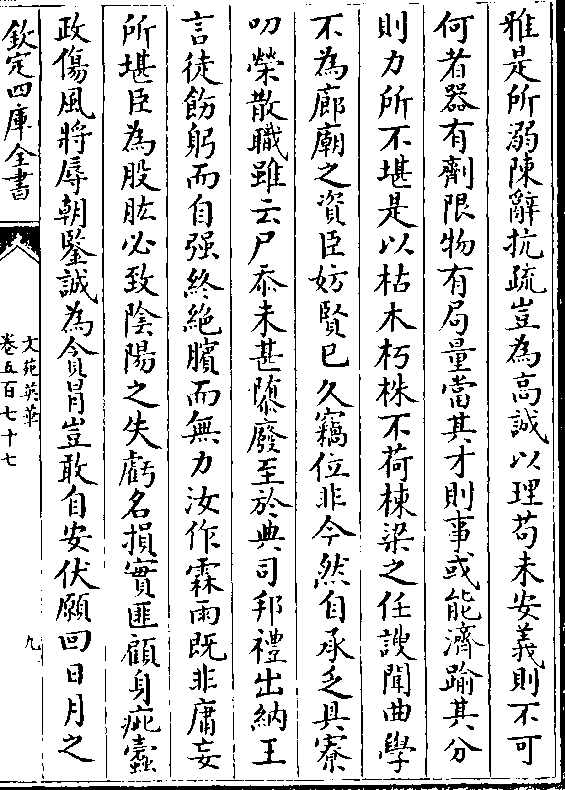 雅是所溺陳辭抗疏豈為高誠以理苟未安義則不可
何者器有劑限物有局量當其才則事或能濟踰其分
則力所不堪是以枯木朽株不荷棟梁之任謏聞曲學
不為廊廟之資臣妨賢已久竊位非今然自承乏具寮
叨榮散職雖云尸忝未甚隳廢至於典司邦禮出納王
言徒飭躬而自强終絶臏而無力汝作霖雨既非庸妄
所堪臣為股肱必致陰陽之失虧名損實匪顧身疵蠧
政傷風將辱朝鑒誠為貪冒豈敢自安伏願回日月之
欽定四庫全書
文苑英華
卷五百七十七
九